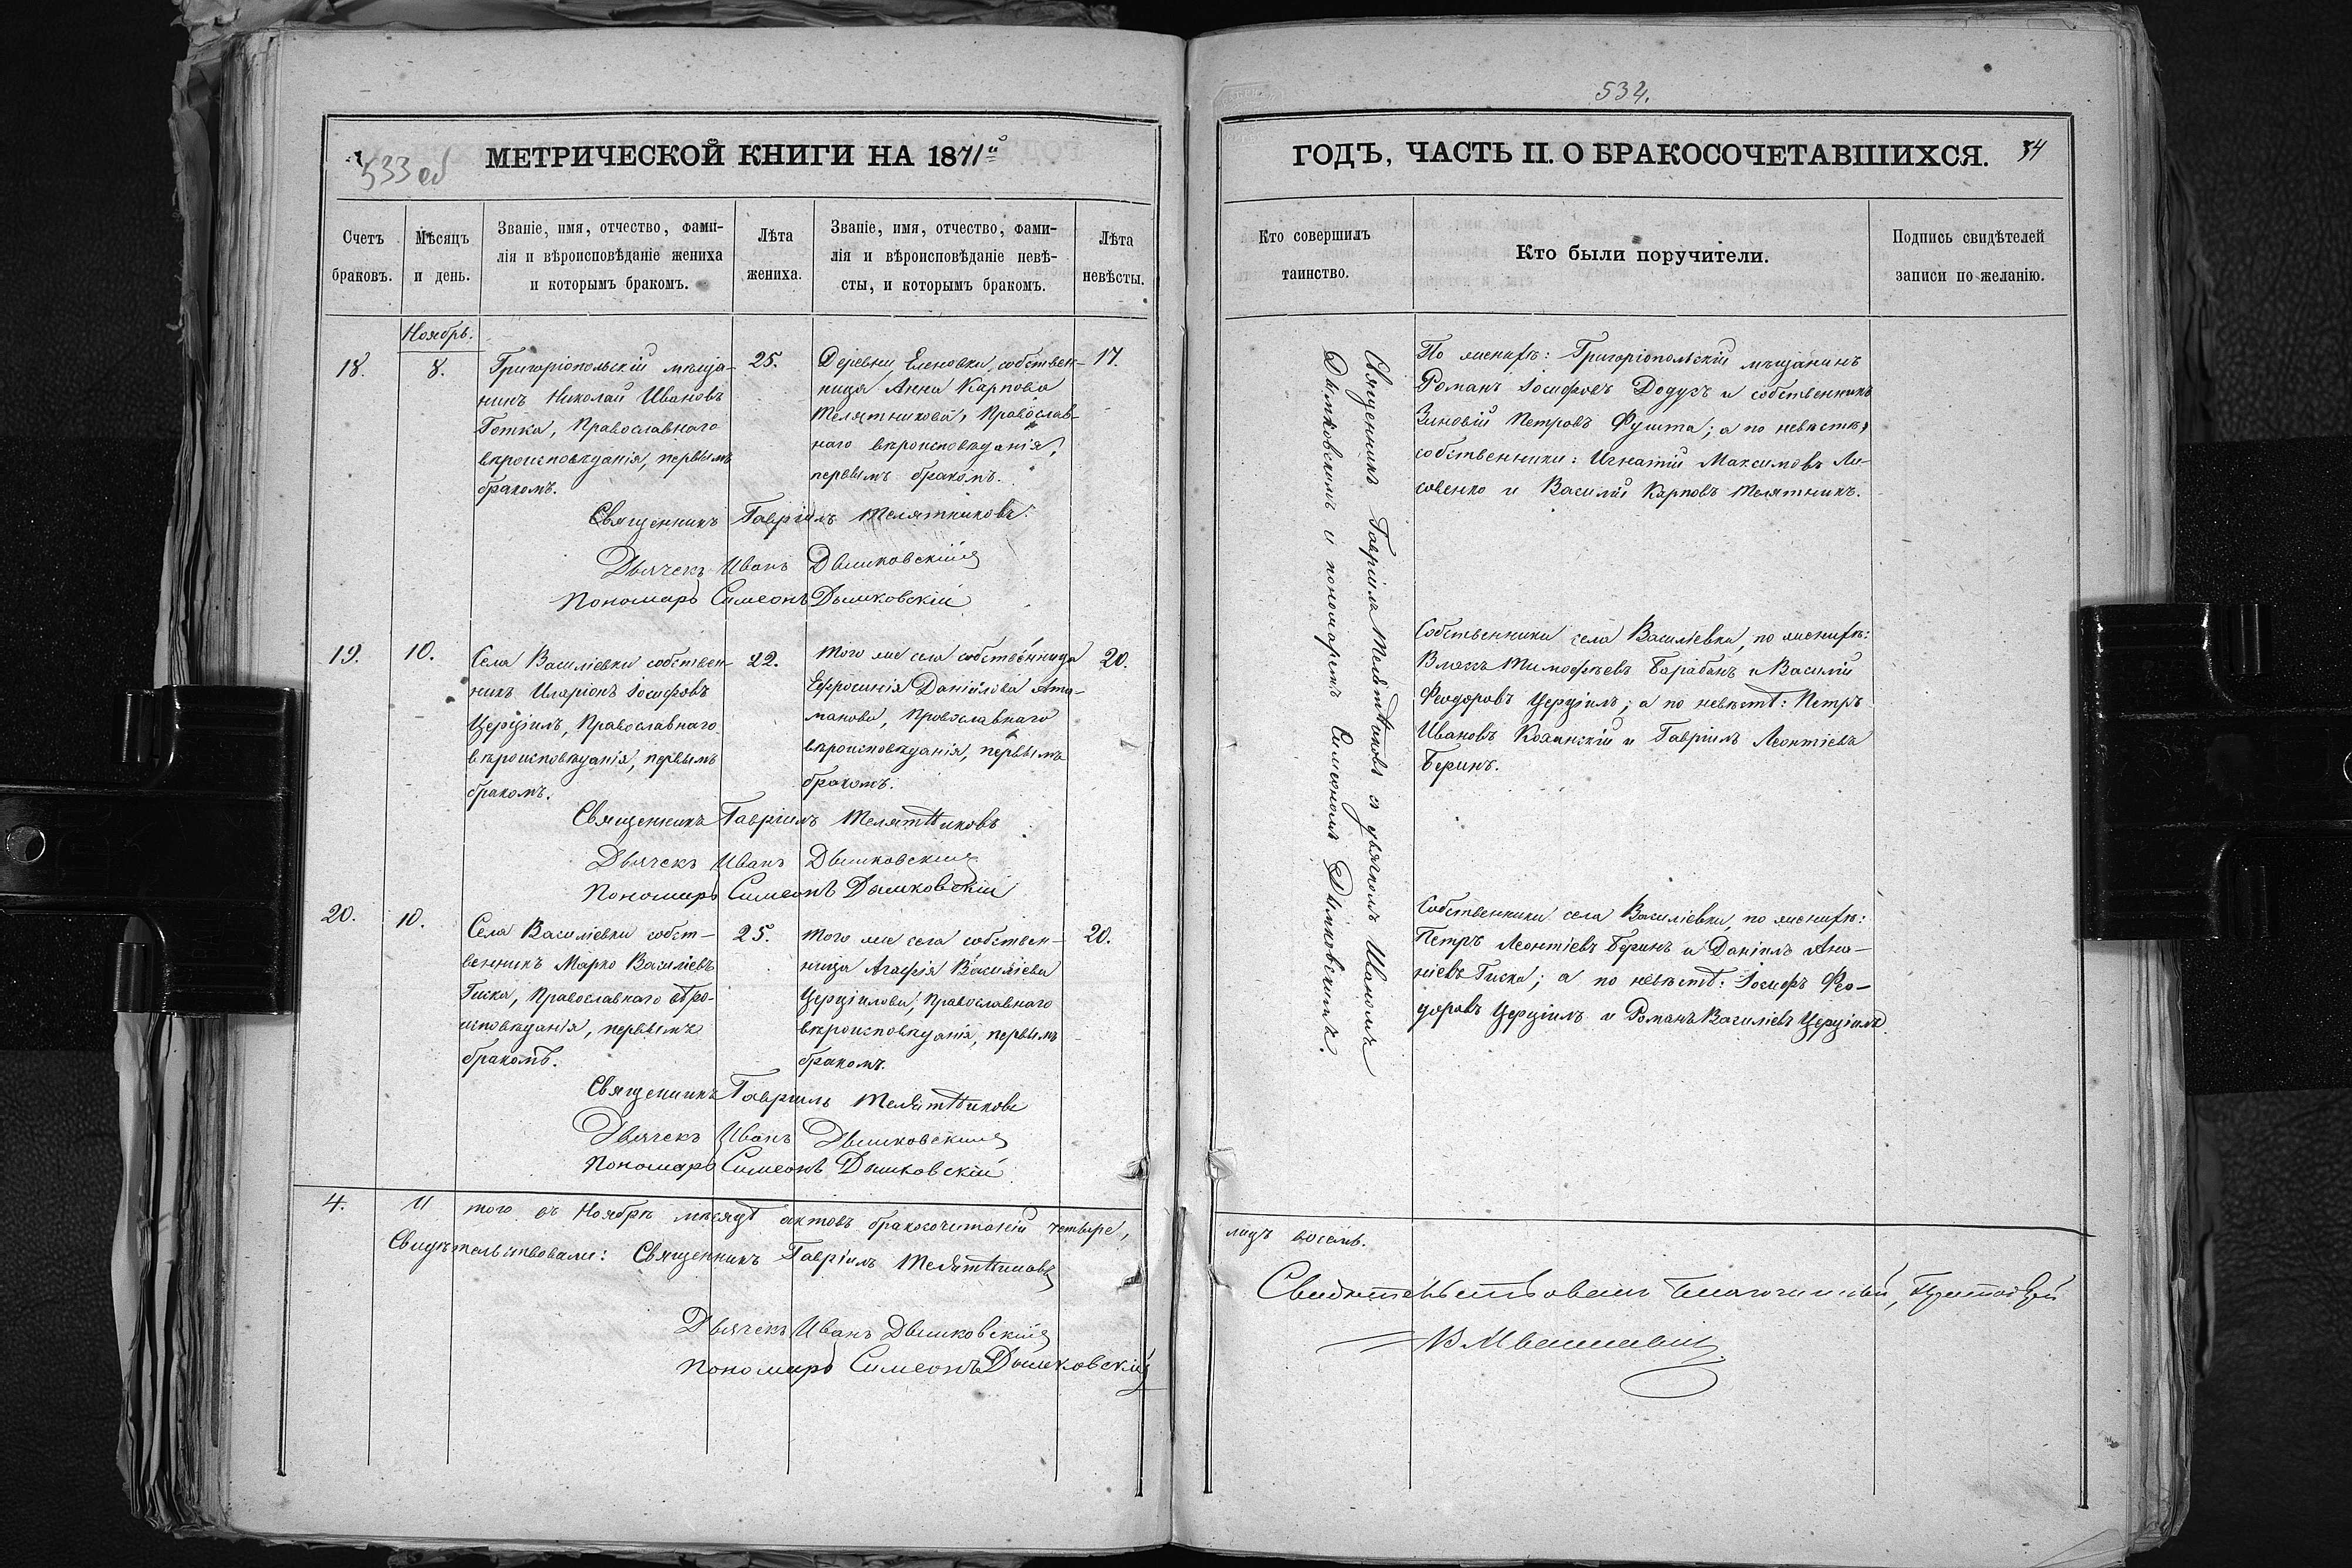 533 об
МЕТРИЧЕСКОЙ КНИГИ НА 1871й
Счетъ браковъ.
Мѣсяцъ и день.
Званіе, имя, отчество, фами-
лія и вѣроисповѣданіе жениха
и которымъ бракомъ.
Лѣта жениха.
Званіе, имя, отчество, фами-
лія и вѣроисповѣданіе невѣ-
сты, и которымъ бракомъ.
Лѣта невѣсты.
Ноябрь.
18.
8.
Григоріопольскій мѣща-
нинъ Николай Ивановъ
Готка, Православнаго
вѣроисповѣданія, первымъ
бракомъ.
25.
Деревни Еленовки собствен-
ница Анна Карпова
Телятникова, Православ-
наго вѣроисповѣданія,
первымъ бракомъ.
17.
Священникъ Гавріилъ Телятниковъ
Дьячекъ Иванъ Дымковскій
Пономарь Симеонъ Дымковскій
19.
10.
Села Василіевки собствен-
никъ Иларіонъ Іосифовъ
Церціилъ, Православнаго
вѣроисповѣданія, первымъ
бракомъ.
22.
Того же села собственница
Ефросинія Даніилова Ата-
манова, Православнаго
вѣроисповѣданія, первымъ
бракомъ.
20.
Священникъ Гавріилъ Телятниковъ
Дьячекъ Иванъ Дымковскій
Пономарь Симеонъ Дымковскій
20.
10.
Села Василіевки собст-
венникъ Марко Василіевъ
Гиска, Православнаго вѣро-
исповѣданія, первымъ
бракомъ.
25.
Того же села собствен-
ница Агафія Василіева
Церціилова, Православнаго
вѣроисповѣданія, первымъ
бракомъ.
20.
Священникъ Гавріилъ Телятниковъ
Дьячекъ Иванъ Дымковскій
Пономарь Симеонъ Дымковскій
4.
И того въ Ноябрѣ мѣсяцѣ актовъ бракосочитаній четыре,
Свидѣтельствовали: Священникъ Гавріилъ Телятниковъ
Дьячекъ Иванъ Дымковскій
Пономарь Симеонъ Дымковскій
534.
ГОДЪ, ЧАСТЬ II. О БРАКОСОЧЕТАВШИХСЯ.
34
Кто совершилъ
таинство.
Кто были поручители.
Подпись свидѣтелей
записи по желанію.
Священникъ Гавріилъ Телятниковъ съ дьячкомъ Иваномъ
Дымковскимъ и пономаремъ Симеономъ Дымковскимъ.
По женихѣ: Григоріопольскій мѣщанинъ
Романъ Іосифовъ Додусъ и собственникъ
Зиновій Петровъ Фушта; а по невѣстѣ,
собственники: Игнатій Максимовъ Ли-
совенко и Василій Карповъ Телятникъ.
Собственники села Василіевки, по женихѣ:
Власъ Тимофѣевъ Барабанъ и Василій
Феодоровъ Церціилъ; а по невѣстѣ: Петръ
Ивановъ Козинскій и Гавріилъ Леонтіевъ
Беринъ.
Собственники села Василіевки, по женихѣ:
Петръ Леонтіевъ Беринъ и Даніилъ Ана-
ніевъ Гиска; а по невѣстѣ: Іосифъ Фео-
доровъ Церціилъ и Романъ Василіевъ Церціилъ.
лицъ восемь.
Свидѣтельствовалъ Благочинный, Протоіерей